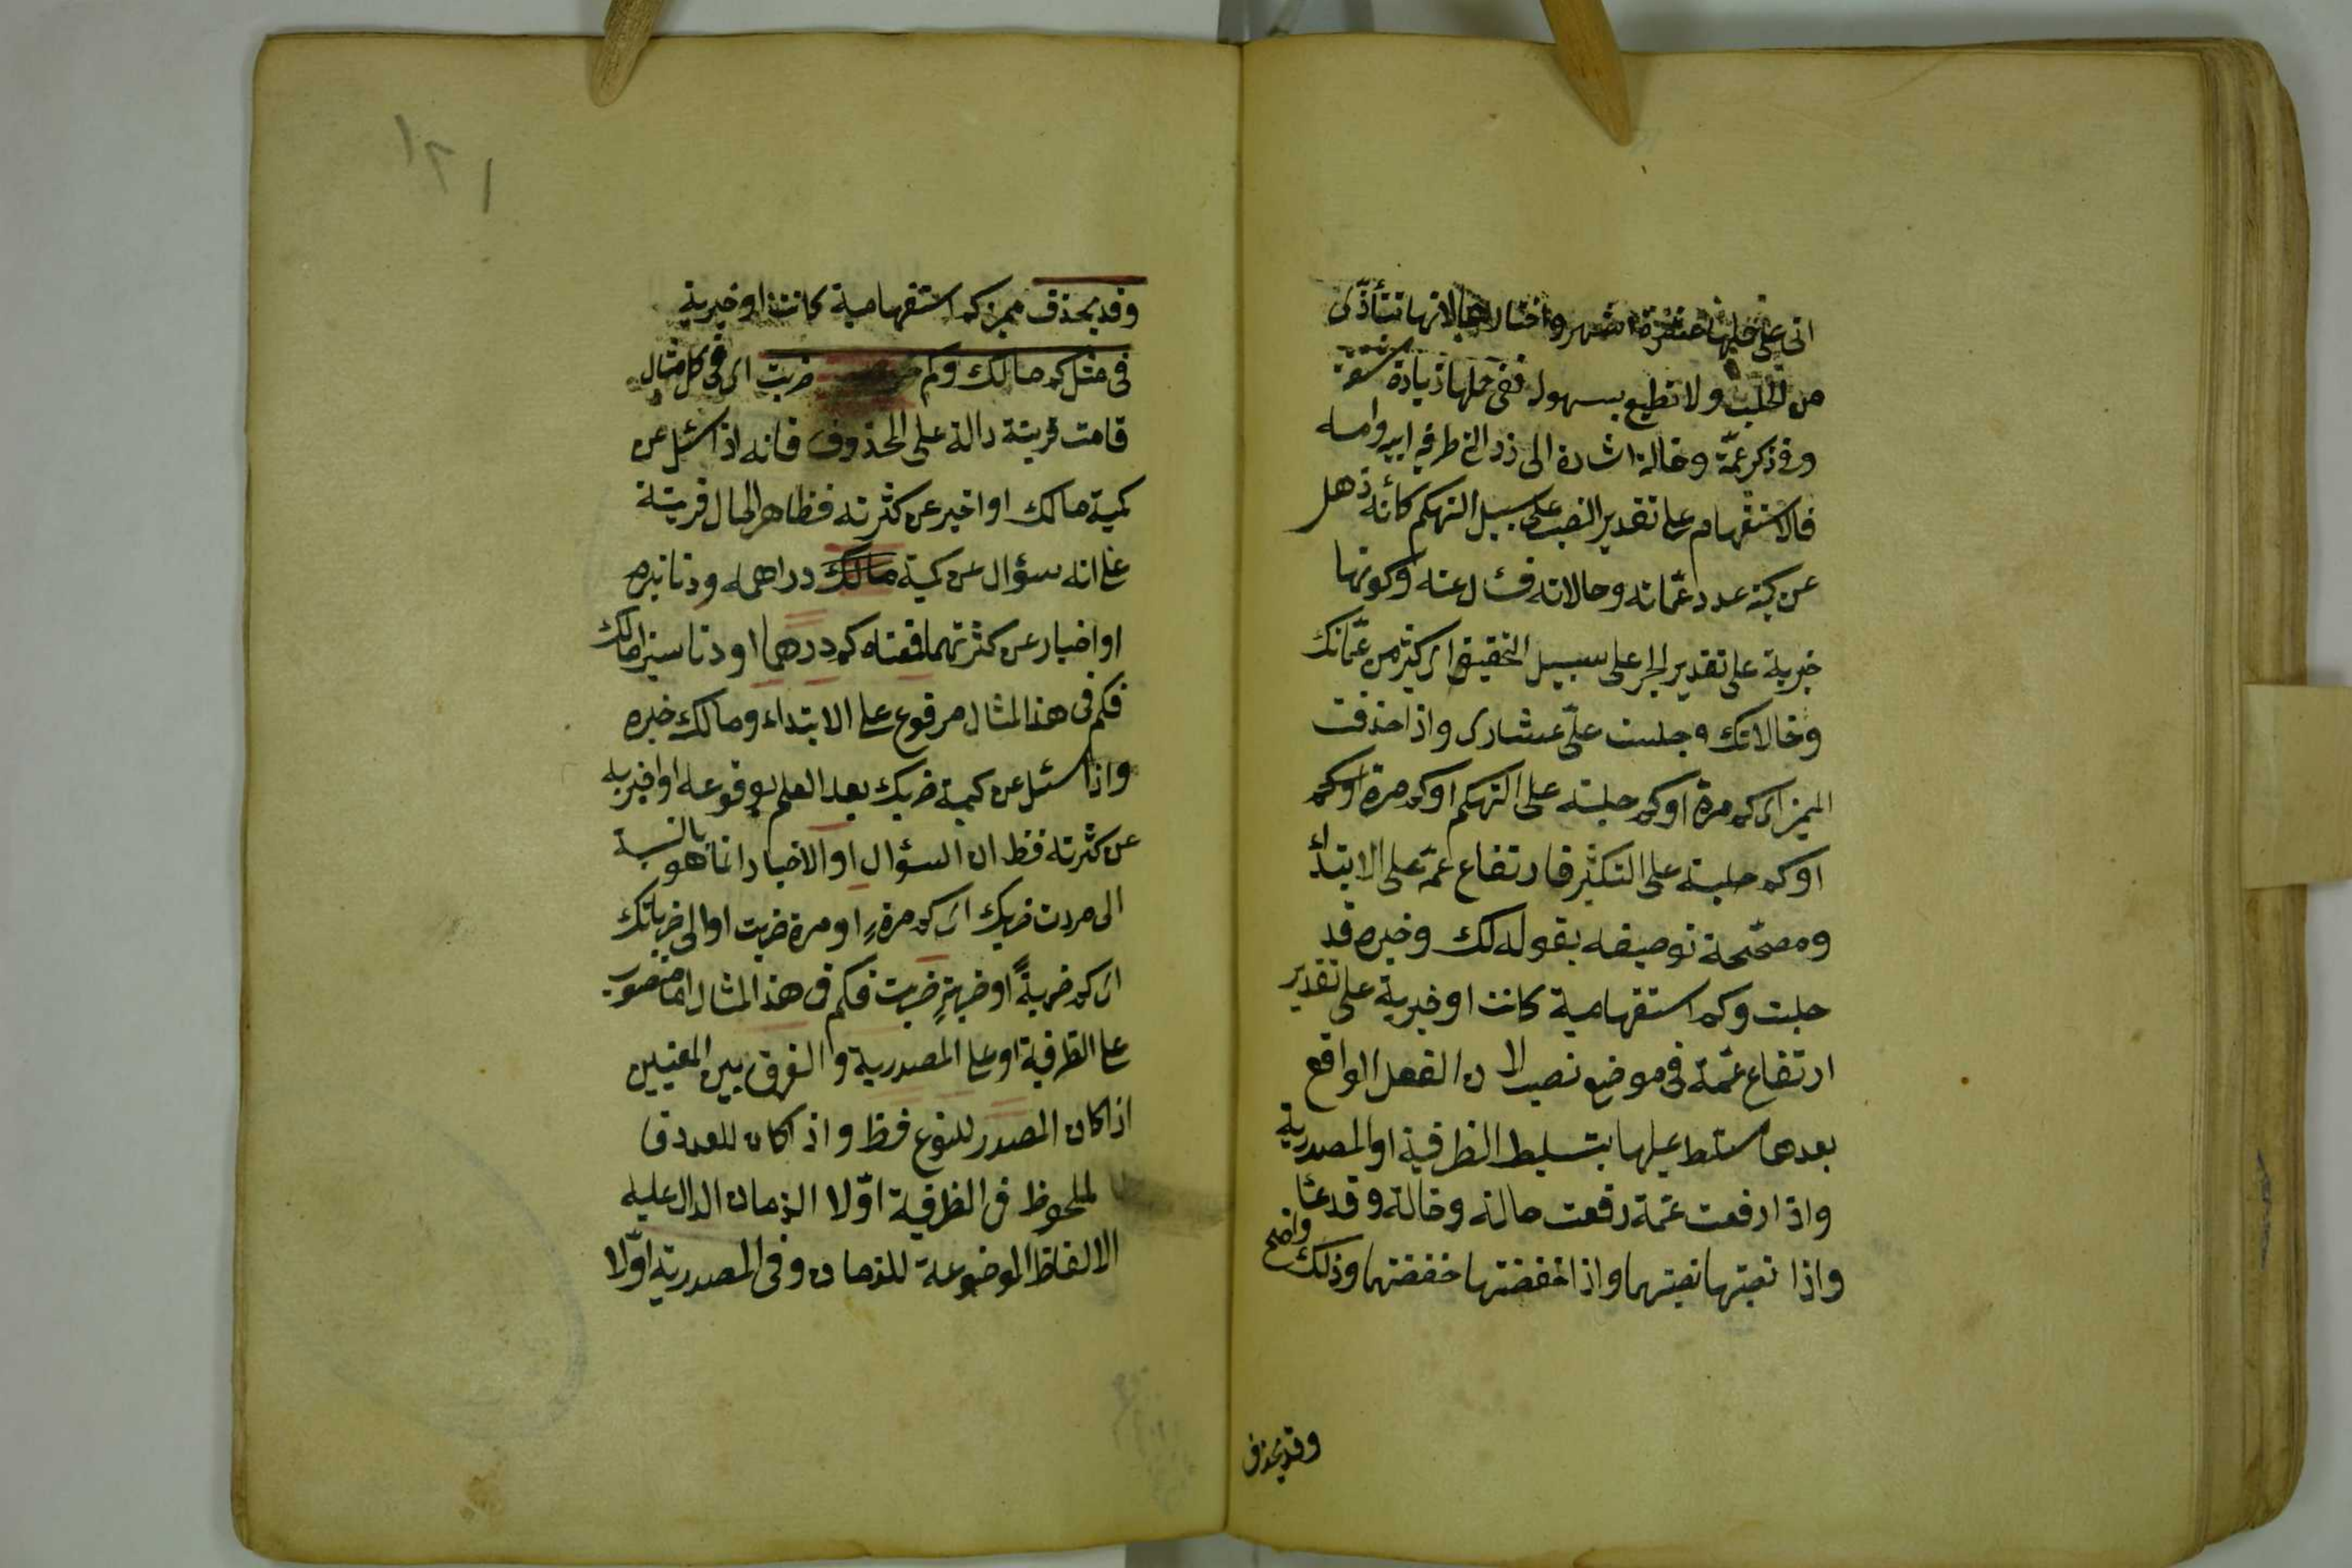 اتى على حلبها عشرة اشهر واختار لانها تتأذى
من الحلب ولا تطيع بسهولة ففى حلبها زيادة مشقة
وفى ذكر عمة وخالة اشارة الى رذالة طرفيه ابيه وامه
فالاستفهام على تقدير النصب على سبيل التهكم كأنه ذهل
عن كمية عدد عماته وحالاته فسئال عنه وكونها
خبرية على تقدير الجر على سبيل التحقيق اى كثير من عماتك
وخالاتك وجلبت على عشارى واذا حذفت
المميز اى كم مرة او كم حلبته على التهكم او كم مرة او كم
او كم حلبته على التكثير فارتفاع عمة على الابتداء
ومصححة توصيفه بقوله لك وخبره قد
حلبت وكم استفهامية كانت او خبرية على تقدير
ارتفاع عمة فى موضع نصب لان الفعل الواقع
بعدها مسلط عليها بتسليط الظرفية او المصدرية
واذا رفعت عمة رفعت حالة وخالة و قدعا
واذا نصبتها نصبتهما واذا خفضتها خفضتهما وذلك واضح
وقد يحذف
١٦١
وقد يحذف مميز كم استفهامية كانت او خبرية
فى مثل كم مالك وكم ضربت اى فى كل مثال
قامت قرينة دالة على المحذوف فانه اذا سئل عن
كمية مالك او اخبر عن كثرته فظاهر الحال قرينة
على انه سؤال عن كمية مالك دراهمه ودنانيره
او اخبار عن كثرتهما فمعناه كم درهما او دنانير مالك
فكم فى هذا المثال مرفوع على الابتداء ومالك خبره
واذا سئل عن كمية ضربك بعد العلم بوقوعه او اخبر به
عن كثرته فظ ان السؤال او الاخبار انما هو بالنسبة
الى مردت ضربك اى كم مرة او مرة ضربت او الى ضرباتك
اى كم ضربةً او ضربةٍ ضربت فكم فى هذا المثال اما منصوب
على الظرفية او على المصدرية والفرق بين المعنيين
اذا كان المصدر للنوع فظ واذا كان للعدد فا
لملحوظ فى الظرفية اوّلا الزمان الدال عليه
الالفاظ الموضوعة للزمان وفى المصدرية اوّلا